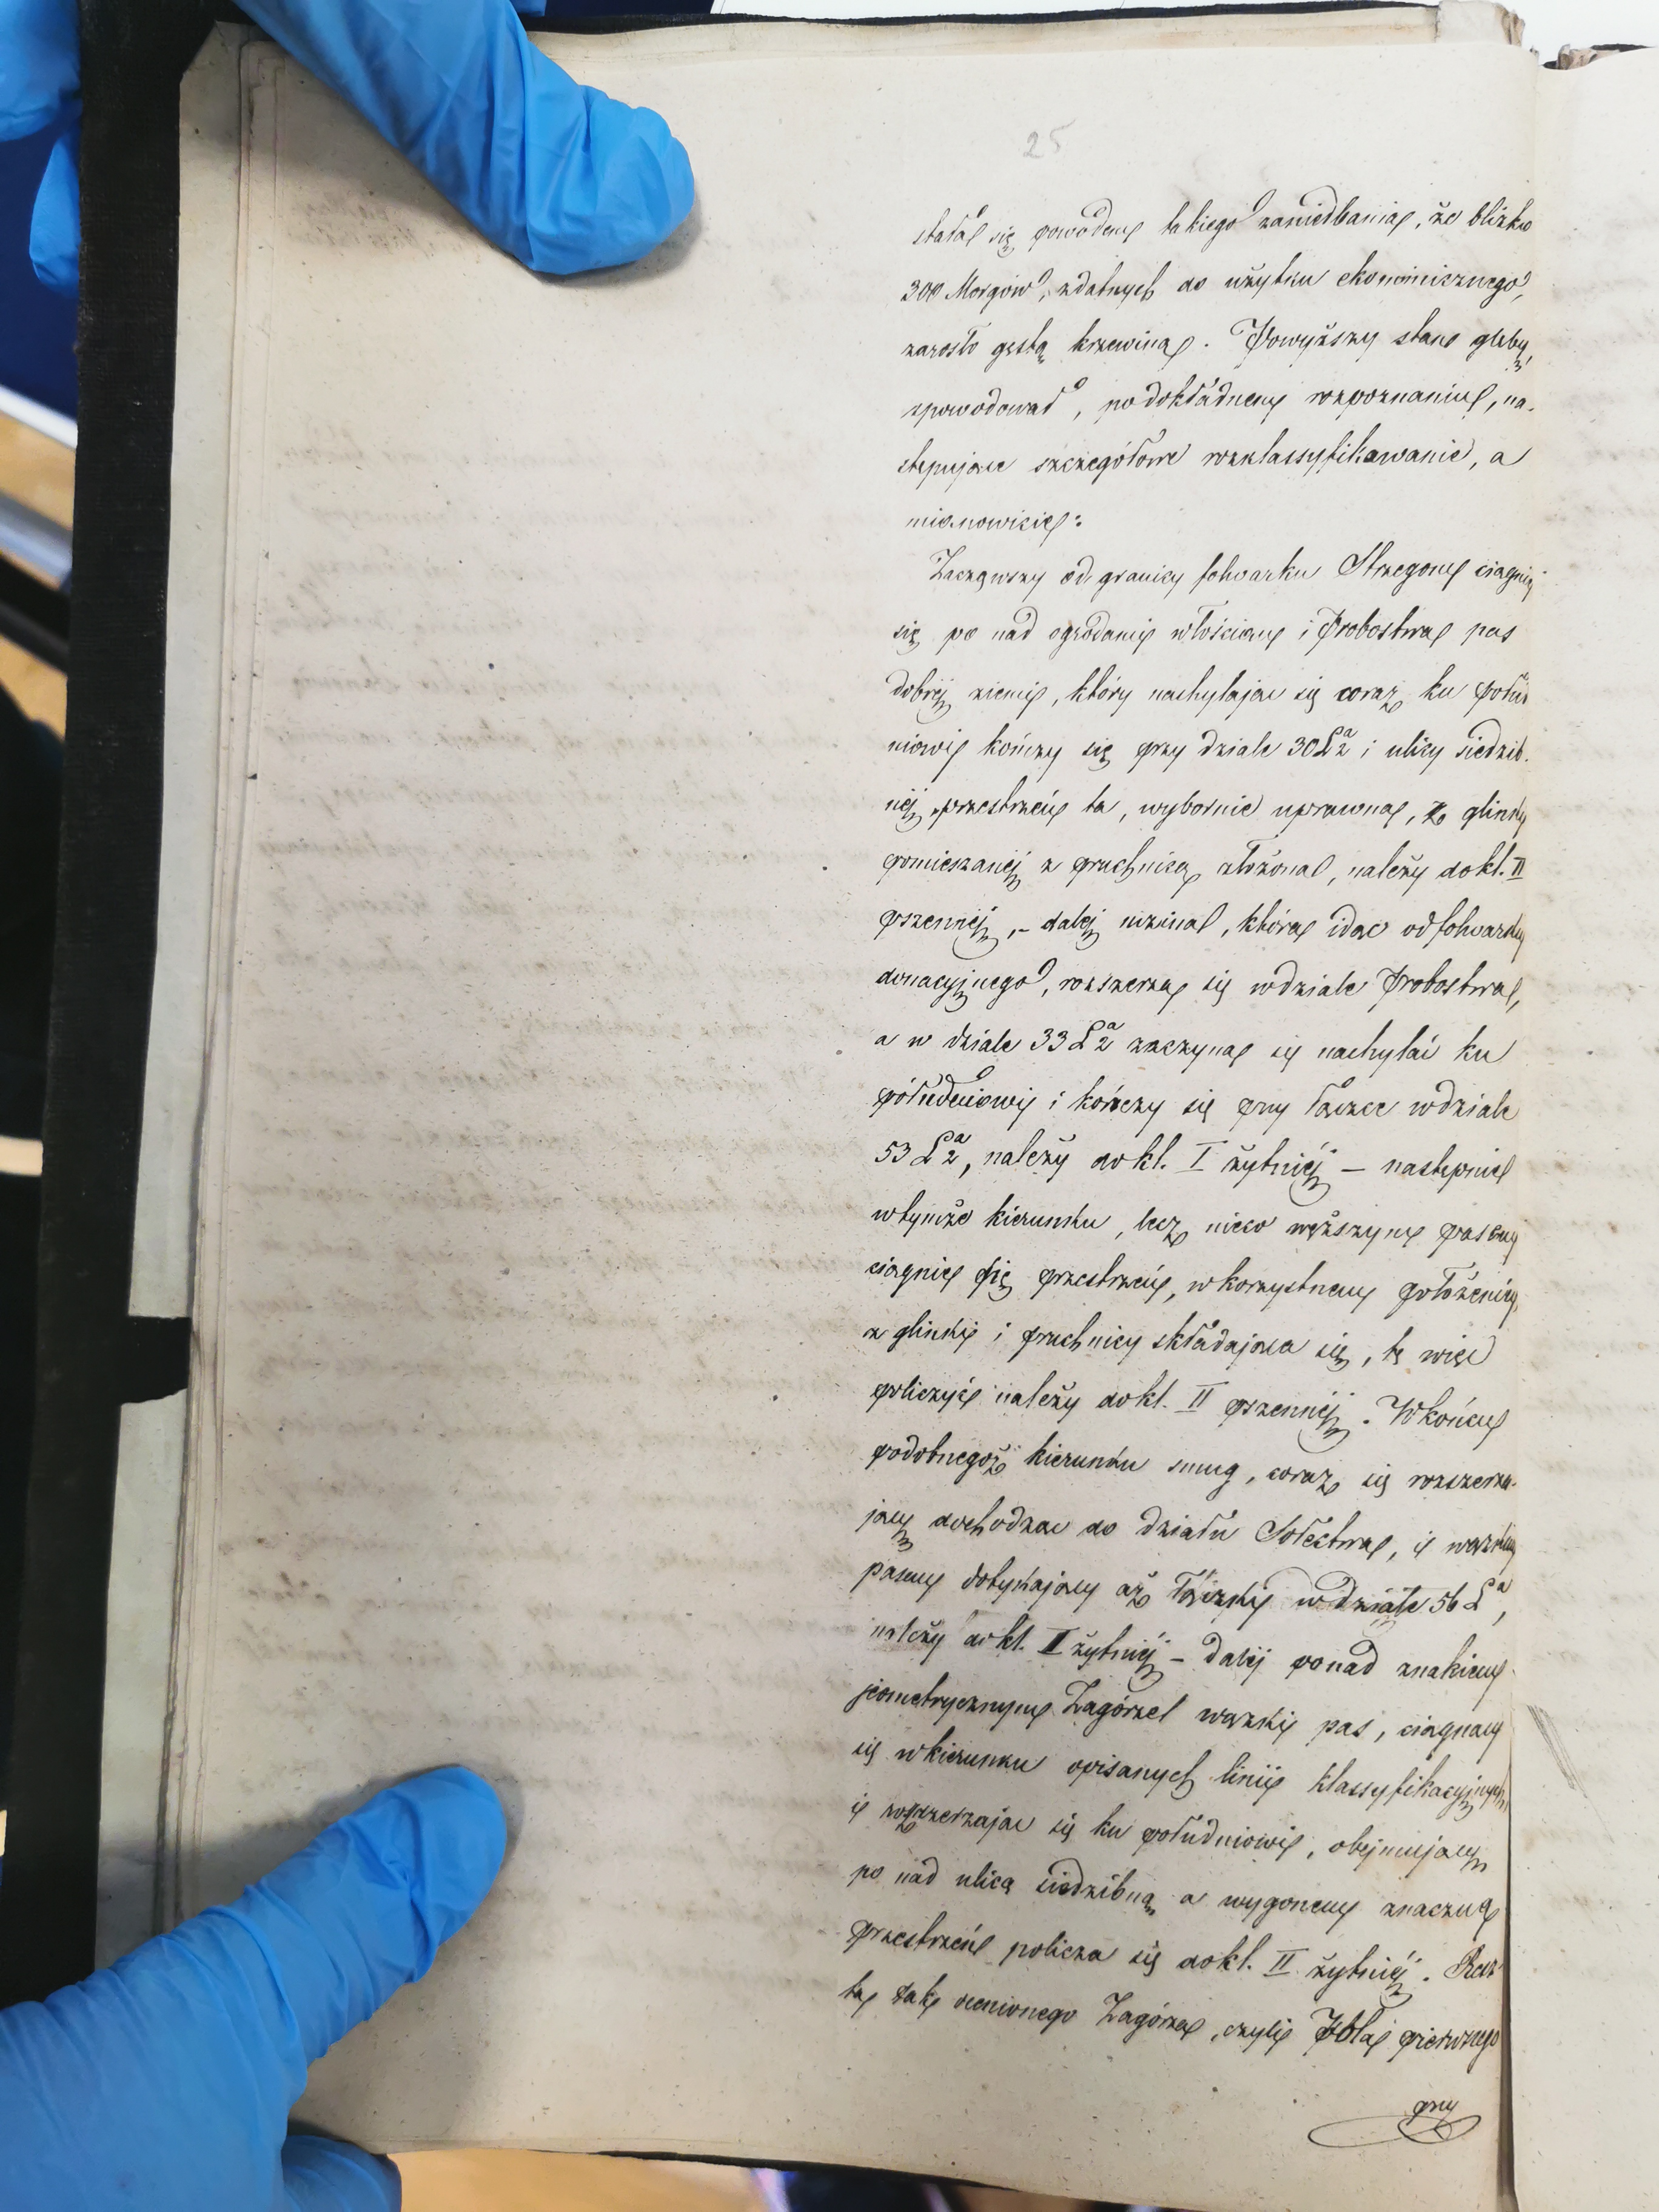 25
stała się powodem takiego zaniedbania, że blizko
300 Morgów, zdatnych do użytku ekonomicznego,
zarosło gęstą krzewiną. Powyższy stan gleby,
spowodował, po dokładnem rozpoznaniu, na-
stępujące szczegółowe rozklassyfikowanie, a
mianowicie:
Zacząwszy od granicy folwarku Strzegom ciągnie
się po nad ogrodami włościan i Probostwa pas
dobréj ziemi, który nachylając się coraz ku połud
niowi kończy się przy dziale 30 La 2 i ulicy siedzib-
néj, przestrzeń ta, wybornie uprawna, z glinki
pomieszanéj z pruchnicą złożona, należy do kl. II
pszennéj, – daléj nizina, która idąc od folwarku
donacyjnego, rozszerza się w dziale Probostwa,
a w dziale 33 La 2 zaczyna się nachylać ku
południowi i kończy się przy łączce w dziale
53 La 2, należy do kl. I żytniéj – następnie
w tymże kierunku, lecz nieco węższym pasem
ciągnie się przestrzeń, w korzystnem położeniu,
z glinki i pruchnicy składająca się, tę więc
policzyć należy do kl. II pszennéj. W końcu
podobnegoż kierunku smug, coraz się rozszerza-
jący dochodząc do działu Sołectwa, i wązkim
pasem dotykający aż łączki w dziale 56 La,
należy do kl. I żytniéj – daléj ponad znakiem
jeometrycznym Zagórze wązki pas, ciągnący
się w kierunku opisanych linii klassyfikacyjnych,
i rozszerzając się ku południowi, obejmujący
po nad ulicą siedzibną a wygonem znaczną
przestrzeń policza się do kl. II żytniéj. Resz
ta tak ocenionego Zagórza, czyli Pola pierwszego
przy